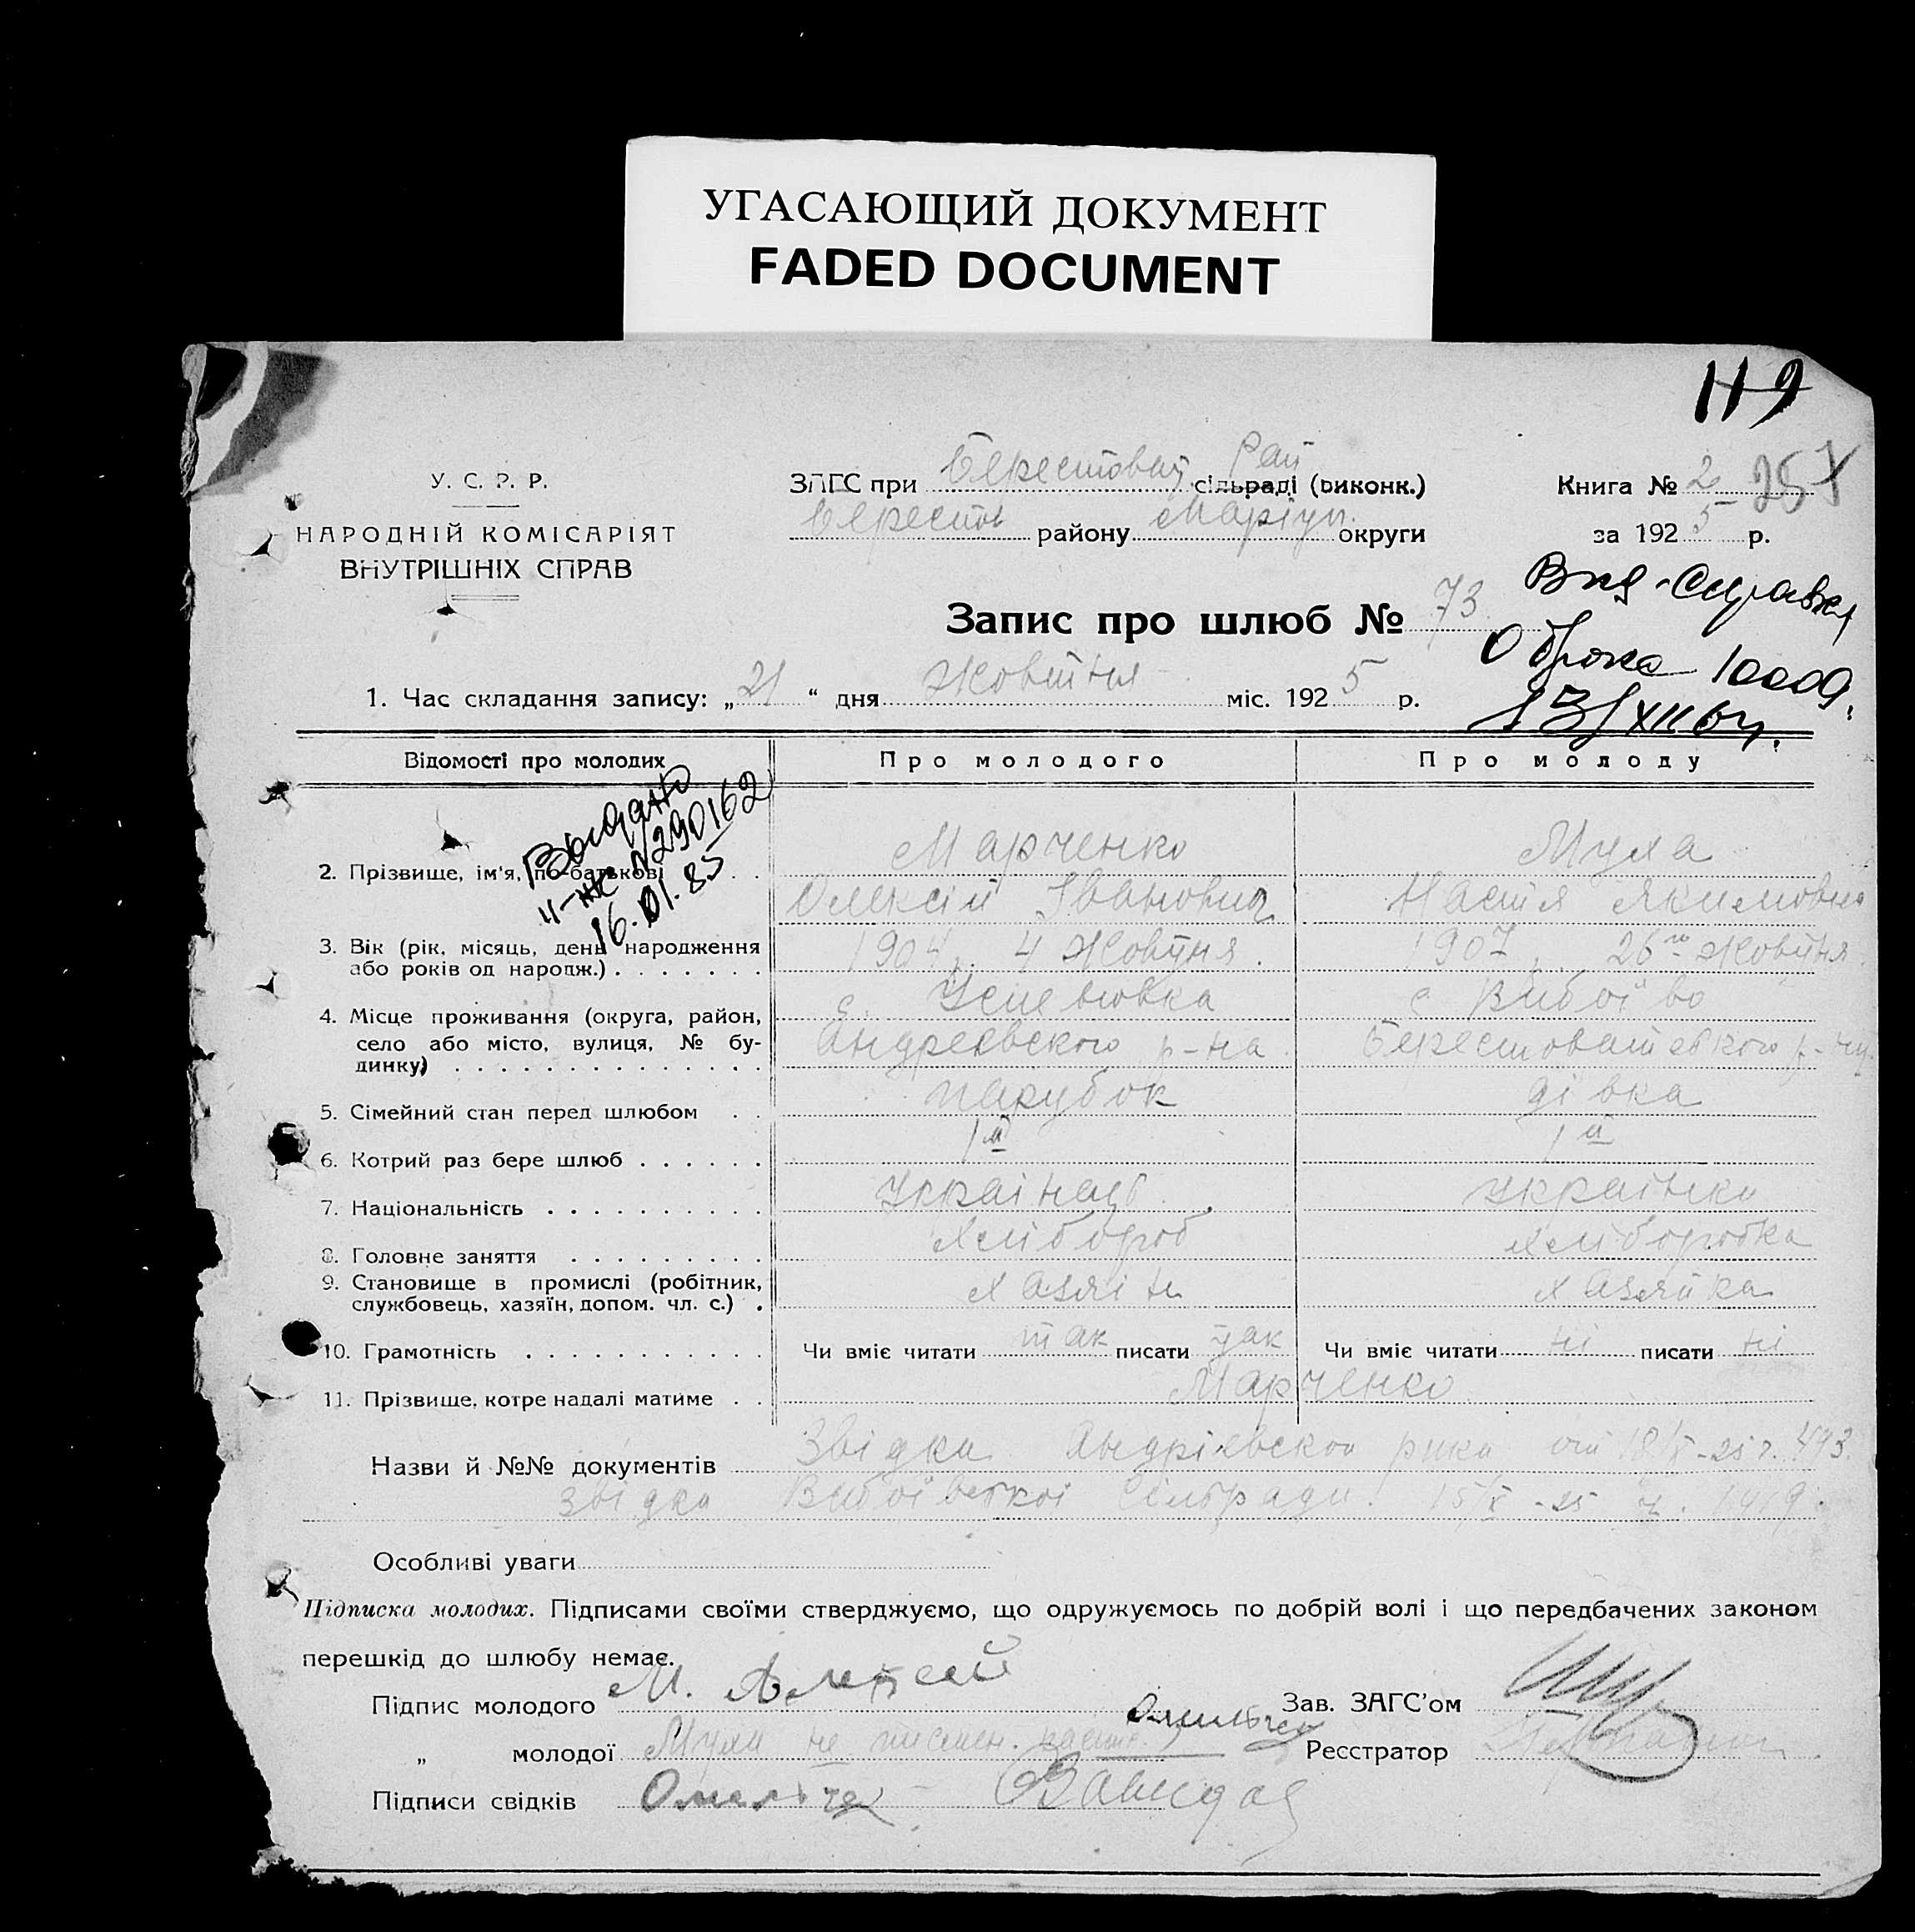 УГАСАЮЩИЙ ДОКУМЕНТ
FADED DOCUMENT
119
У. С. Р. Р.
НАРОДНІЙ КОМІСАРІЯТ
ВНУТРІШНІХ СПРАВ
ЗАГС при Берестоват Рай сільраді (виконк.)
Берестов району Маріуп. округи
Книга № 2 257
за 1925 р.
Запис про шлюб № 73
Справка
о браке 10009.
XII
1. Час складання запису: „21“ дня Жовтня міс. 1925 р.
Відомості про молодих
Про молодого
Про молоду
Выдано
II-ЖС N290162
16.01.85
2. Прізвище, ім'я, по-батькові . .
Марченко
Олексій Іванович
Муха
Настя Якимовна
3. Вік (рік, місяць, день народження
або років од народж.) . . . . . . .
1904 4 Жовтня.
1907, 26го Жовтня.
4. Місце проживання (округа, район,
село або місто, вулиця, № бу-
динку) . . . . . . . . . . . . . .
с.
Андреевского р-на.
с Вибоїво
Берестоватевского р-ну.
5. Сімейний стан перед шлюбом . .
парубок
дівка
6. Котрий раз бере шлюб . . . . . .
1й
1й
7. Національність . . . . . . . . . .
Українець
Українка
8. Головне заняття . . . . . . . . .
Хлібороб
Хліборобка
9. Становище в промислі (робітник,
службовець, хазяїн, допом. чл. с.) .
Хазяін
Хазяйка
10. Грамотність . . . . . . . . . . .
Чи вміє читати так писати так
Чи вміє читати ні писати ні
11. Прізвище, котре надалі матиме . .
Марченко
Назви й №№ документів Звідка Андріевскои рика от 18/X-25 г. 443.
звідка Вибоївської Сільради. 15/X-25 1419.
Особливі уваги
Підписка молодих. Підписами своїми стверджуємо, що одружуємось по добрій волі і що передбачених законом
перешкід до шлюбу немає.
Підпис молодого М. Алексей
Зав. ЗАГС'ом
„ молодої Муха не писмен.
Реєстратор
Підписи свідків